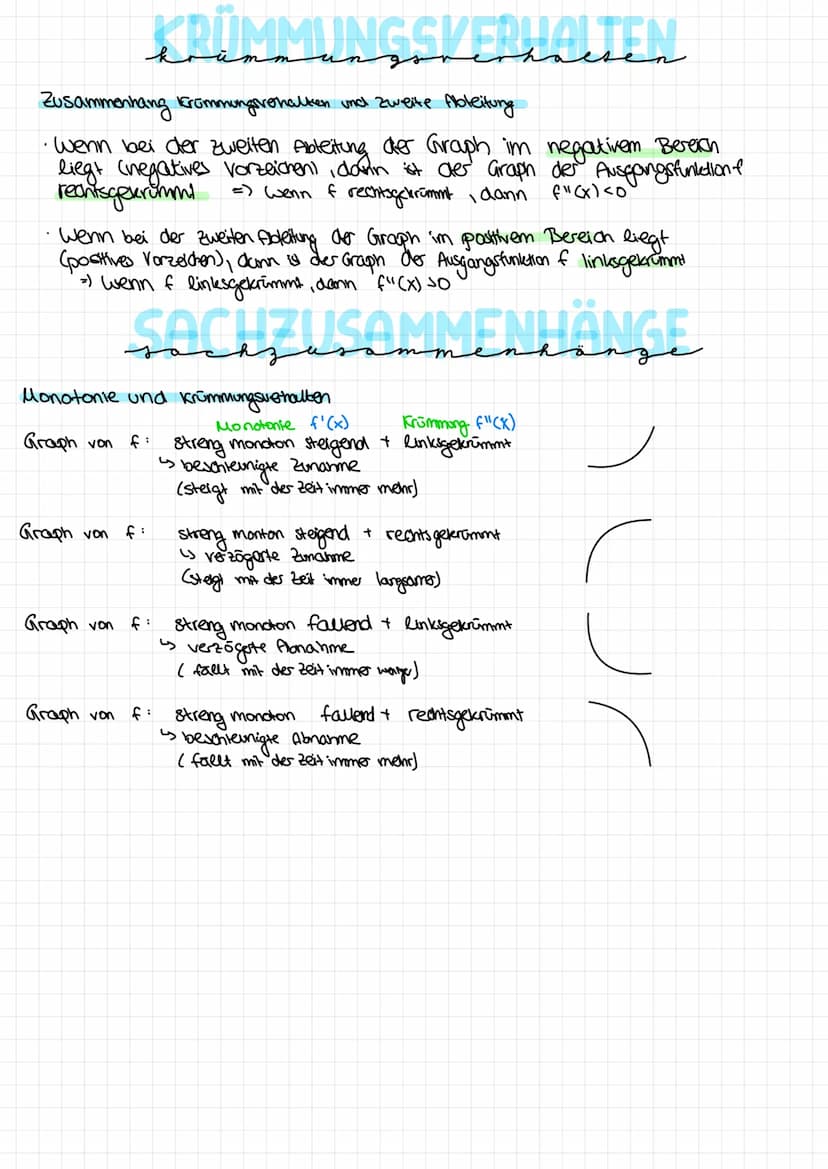 KRÜMMUNGSVERHALTEN
krümmungsverhalten
Zusammenhang Krümmungsverhalten und zweite Ableitung
· Wenn bei der zweiten Ableitung der Graph im negativem Bereich
liegt (negatives Vorzeichen), dann ist der Graph der Ausgangsfunktion f
rechtsgekrümmt => wenn f rechtsgekrümmt, dann f''(x) <0
· Wenn bei der zweiten Ableitung der Graph im positivem Bereich liegt
(positives Vorzeichen), dann is der Graph der Ausgangsfunktion f linksgekrümmt
=> wenn f linksgekrümmt, dann f''(x) >0
SACHZUSAMMENHÄNGE
sachzusammenhänge
Monotonie und Krümmungsverhalten
Monotonie f'(x) Krümmung f''(x)
Graph von f: streng monoton steigend + linksgekrümmt
↳ beschleunigte Zunahme
(steigt mit der Zeit immer mehr)
Graph von f: streng monton steigend + rechtsgekrümmt
↳ verzögerte Zunahme
(steigt mit der Zeit immer langsamer)
Graph von f: streng monoton fallend + linksgekrümmt
↳ verzögerte Abnahme
(fällt mit der Zeit immer)
Graph von f: streng monoton fallend + rechtsgekrümmt
↳ beschleunigte Abnahme
(fällt mit der Zeit immer mehr)